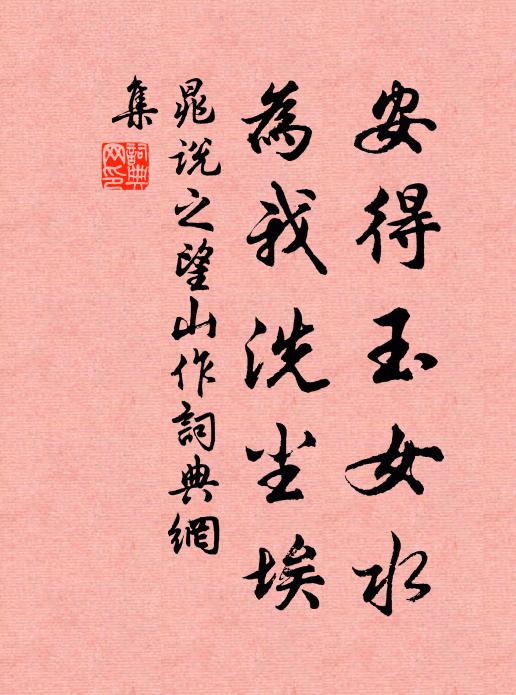 安得玉女水
為我洗尘埃
晁説之望山作詞典網
集
詞典網印